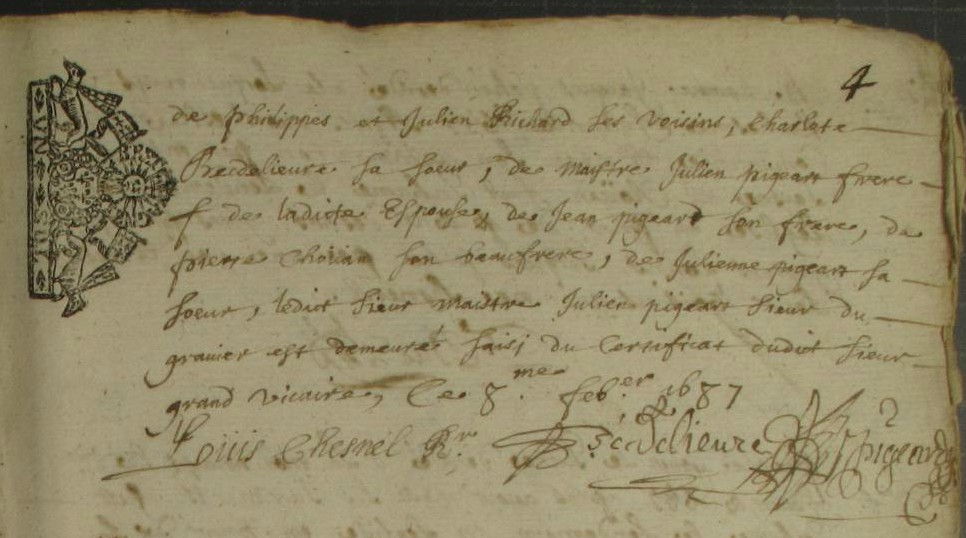 4
de Philippes et Julien Richard ses voisins, Charlote
Recdelieure sa soeur, de maistre Julien pigeart frere
f de ladicte Espouse, de Jean pigeart son frere, de
pierre Choüan son beaufrere, de Julienne pigeart sa
soeur, ledict sieur maistre Julien pigeart sieur du
gravier est demeuré saisi du Certificat dudict sieur
grand vicaire, Ce 8.me feber 1687
Louis Chesnel Rr. Recdelieure J pigeard